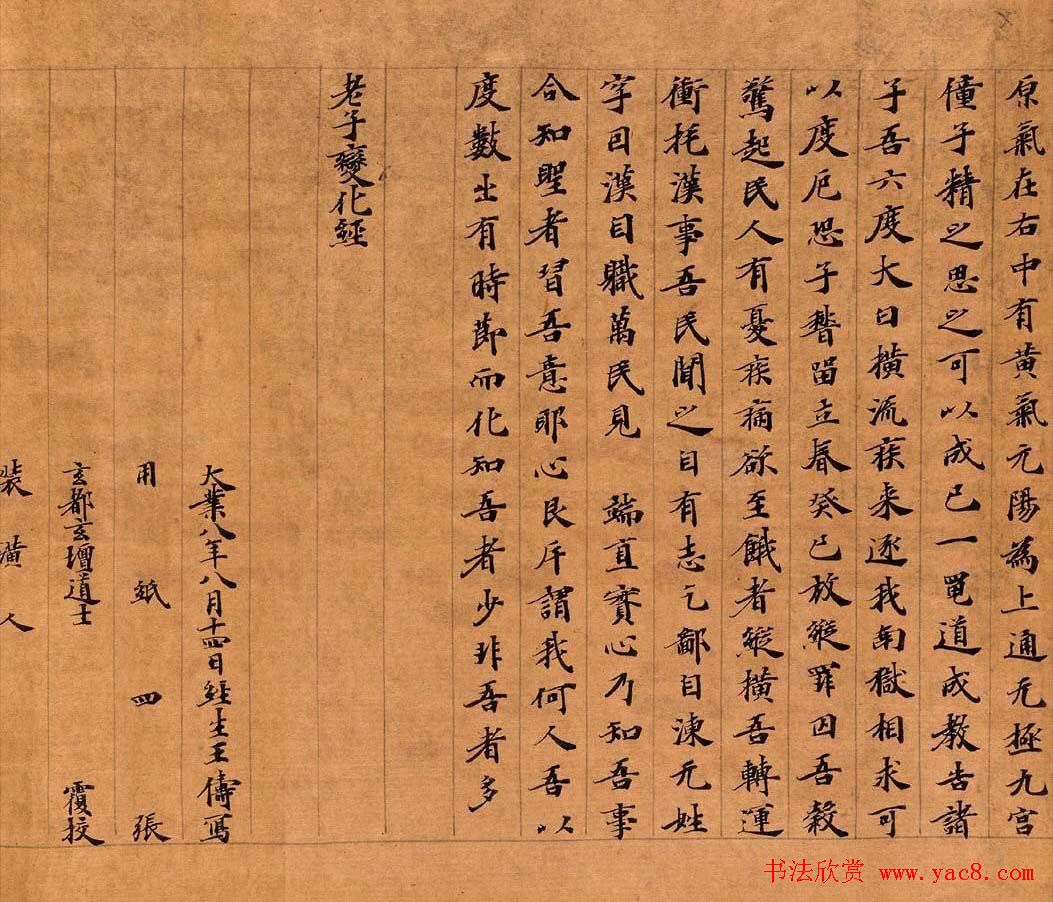 原氣在右中有黃氣元陽為上通无極九宮
僮子精之思之可以成己一黽道成教告諸
子吾六度大曰橫流疾来逐我南獄相求可
以度厄恐子稽留立春癸巳放縱罪囚吾穀
驚起民人有憂疾病欲至餓者縱橫吾轉運
衝托漢事吾民聞之自有志乞鄙自涷无姓
字因漢自職萬民見 端直實心乃知吾事
合知聖者習吾意耶心艮斤謂我何人吾以
度數出有時節而化知吾者少非吾者多
老子變化經
大業八年八月十四日経生王儔寫
用紙四張
玄都玄壇道士 覆校
装潢人
书法欣赏 www.yac8.com